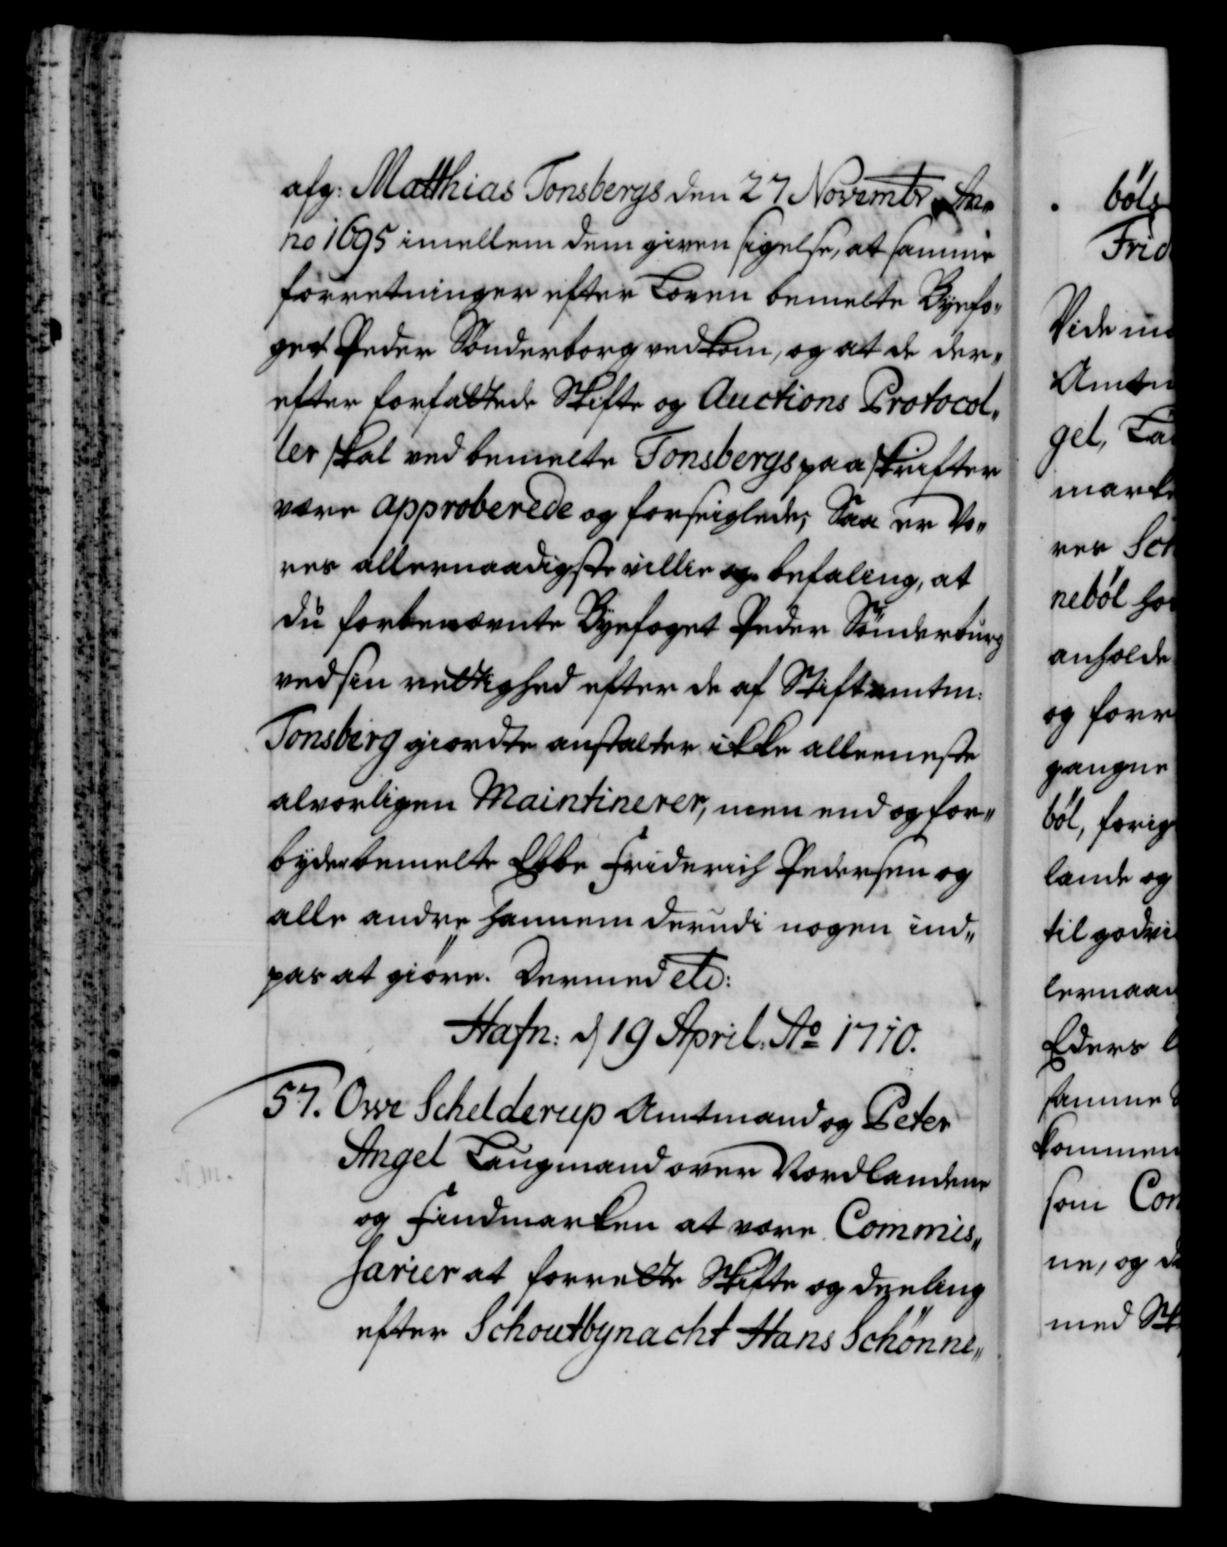 afg: Matthias Tonsbergs den 27 Novembr. An„
no 1695 imellem dem given sigelse, at samme
forretninger efter Loven bemelte Byefo„
get Peder Sønderborg vedkom, og at de der„
efter forfattede Skifte og Auctions Protocol„
ler skal ved bemelte Tonsbergs paaskrifter
være approberede og forseiglede; Saa er Vo„
res allernaadigste villie og befaling, at
du forbenævnte Byefoget Peder Sönderburg
ved sin rettighed efter de af Stiftamtm:
Tonsberg giordte anstalter ikke alleeneste
alvorligen Maintinerer, men end og for„
byder bemelte Ebbe Friderich Pedersen og
alle andre hannem derudi nogen ind„
pas at giöre. Dermed etc:
Hafn: d 19 April. Ao 1710.
57. Owe Schelderup Amtmand og Peter
Angel Laugmand over Nordlandene
N.m.
og Findmarken at være Commis„
sarier at forrette Skifte og deeling
efter Schoutbynacht Hans Schönne„
böls
Frid
Vide me
Amtm
gel, La
marke
res Sch
neböl ho
anholde
og forr
gangne
böl, forig
lande og
til godvi
lernaad
Eders l
samme
kommen
som Com
ne, og d
med Sk